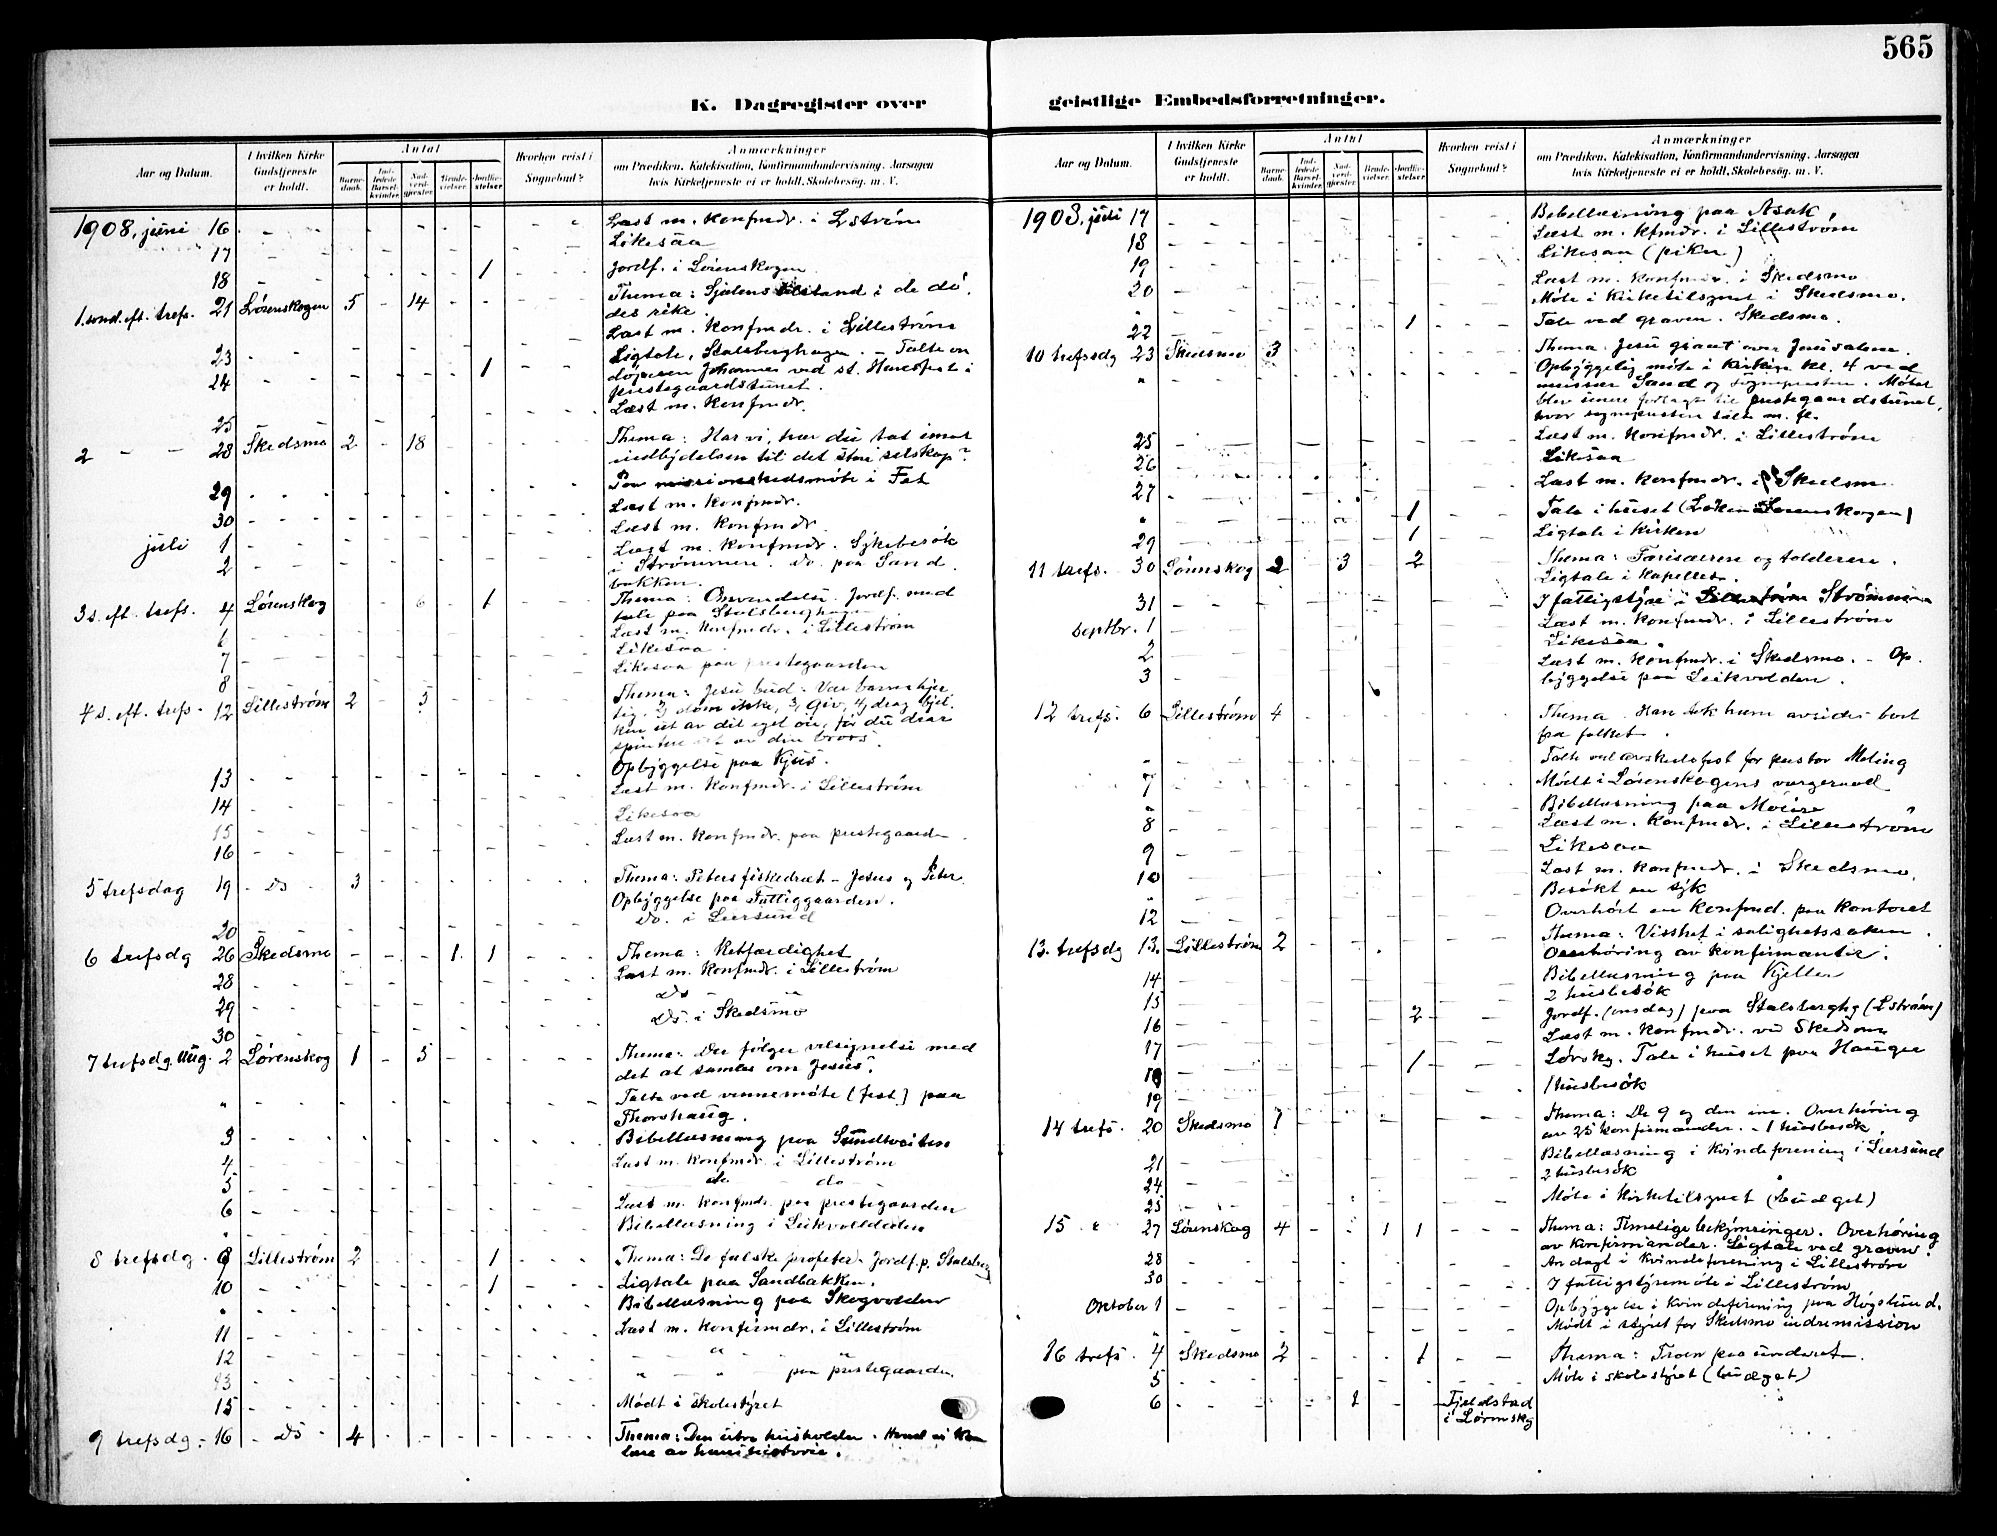 565
K. Dagregister over
geistlige Embedsforretninger.
Aar og Datum.
I hvilken Kirke Gudstjeneste er holdt.
Antal
Barnedaab.
Indledede Barselkvinder.
Nadverdgjester
Brudevielser.
Jordfæstelser
Hvorhen reist i Sognebud?
Anmærkninger
om Prædiken, Katekisation, Konfirmandundervisning, Aarsagen
hvis Kirketjeneste ei er holdt, Skolebesøg, m. V.
1908, juni 16 Læst m. Konfmdr. i Lstrøm
17 Likesaa
18 1 Jordf. i Lørenskogen
1. sond. eft. trefs. 21 Lørenskogen 5 - 14 Thema: Sjælens tilstand i de dø-
des rike.
Læst m. Konfmdr. i Lillestrøm
23 Ligtale, Stalsberghagen. - Talte om
24 1 døperen Johannes ved st. Hansfest i
prestegaardstunet.
25 Læst m. Konfmdr.
2 - - 28 Skedsmo 2 - 18 Thema: Har vi, har du tat imot
indbydelsen til det store selskap?
29 Paa missionskredsmøte i Fet
30 Læst m. Konfmdr.
juli 1 Læst m. Konfmdr.
2 Læst m. Konfmdr. Sykebesøk
i Strømmen. do. paa Sand-
bakken.
3 s. eft. trefs. 4 Lørenskog 6 - 1 Thema: Omvendelse. Jordf. med
tale paa Stalsberghagen
6 Læst m. Konfmdr. i Lillestrøm
7 Likesaa.
8 Likesaa paa prestegaarden
4 s. eft. trefs. 12 Lillestrøm 2 - 5 Thema: Jesu bud: Vær barmhjer-
tig, 2) døm ikke, 3, Giv, 4) drag bjel-
ken ut av dit eget øie, før du drar
splinten ut av din brors.
Opbyggelse paa Kjus.
13 Læst m. Konfmdr. i Lillestrøm
14 Likesaa
15 Læst m. Konfmdr. paa prestegaarden
16
5 trefsdag 19 - Do - 3 Thema: Peters fiskedræt - Jesus og Peter.
Opbyggelse paa Fattiggaarden.
20 Do. i Leersund
6 trefsdg 26 Skedsmo - - - 1 1 Thema: Retfærdighet
28 Læst m. Konfmdr. i Lillestrøm
29 Do -
30 Do. i Skedsmo
7 trefsdg. Aug. 2 Lørenskog 1 - 5 Thema: Der følger velsignelse med
det at samles om Jesus.
" Talte ved vennemøte (fest) paa
Thorshaug.
3 Bibellæsning paa Sundtveiten
4 Læst m. Konfmdr. i Lillestrøm
5 do. do -
6 Læst m. Konfmdr. paa prestegaarden
" Bibellæsning i Leikvolddalen
8 trefsdg. 9 Lillestrøm 2 1 Thema: De falske profeter. Jordf. p. Stalsberg
10 1 Ligtale paa Sandbakken.
" Bibellæsning paa Skogvolden
11 Læst m. Konfirmdr. i Lillestrøm
12 - - " - "
13 " - " - paa prestegaarden
15 Mødt i skolestyret
9 trefsdg. - 16 - Do - 4 Thema: Den utro husholder.
lære av hans historie.
1908, juli 17 Bibellæsning paa Asak,
18 Læst m. Kfmdr. i Lillestrøm
19 Likesaa (piker)
20 Læst m. Konfmdr. i Skedsmo
" Møte i Kirketilsynet i Skedsmo.
22 1 Tale ved graven. Skedsmo.
10 trefsdg 23 Skedsmo 3 Thema: Jesu graat over Jerusalem.
" Opbyggelig møte i kirken kl. 4 ved
missær Sand og sognepresten. Møtet
blev senere forlagt til prestegaardstunet,
hvor sognepresten talte m. fl.
25 Læst m. Konfmdr. i Lillestrøm
26 Likesaa
27 Læst m. Konfmdr. i Skedsm
" 1 Tale i huset (Løken Lørenskogen)
29 1 Ligtale i Kirken
11 trefs. 30 Lørenskog 2 3 2 Thema: Farisæeren og tolderen.
Ligtale i kapellet.
31 I fattigstyre i Strømmen
Septbr. 1 Læst m. Konfmdr. i Lillestrøm
2 Likesaa.
3 Læst m. Konfmdr. i Skedsmo. - Op-
byggelse paa Leikvolden.
12 trefs. 6 Lillestrøm 4 Thema. Han tok ham avsides bort
fra folket.
" Talte ved avskedsfest for pastor Meling
7 Mødt i Lørenskogens vergeraad
" Bibellæsning paa Moser
8 Læst m. Konfmdr. i Lillestrøm
9 Likesaa
10 Læst m. Konfmdr. i Skedsmo.
" Besøkt en syk
12 Overhørt en Konfmd. paa kontoret
13. trefsdg 13. Lillestrøm 2 Thema: Visshet i salighetssaken.
Overhøring av Konfirmanter.
14 Bibellæsning paa Kjeller
15 2 husbesøk
16 2 Jordf. (onsdag) paa Stalsberghg (Lstrøm)
17 Læst m. Konfmdr. ved Skedsmo
18 1 Lørskg. Tale i huset paa Hauger
19 1 husbesøk
14 trefs. 20 Skedsmo 1 Thema: De 9 og den ene. Overhøring
av 25 konfirmander. - 1 husbesøk.
21 Bibellæsning i Kvindeforening i Leersund
24 2 husbesøk
25 Møte i Kirketilsynet (budget)
15 " 27 Lørenskog 4 - - 1 1 Thema: Timelige bekymringer. Overhøring
av konfirmander. Ligtale ved graven.
28 Andagt i Kvindeforening i Lillestrøm
30 I fattigstyremøte i Lillestrøm
Oktober 1 Opbyggelse i Kvindeforening paa Høgslund.
" Mødt i styret for Skedsmo indremission
16 trefs. 4 Skedsmo 2 1 Thema: Troen paa underet.
5 Møte i skolestyret (budget)
6 1 Fjeldstad
i Lørenskg